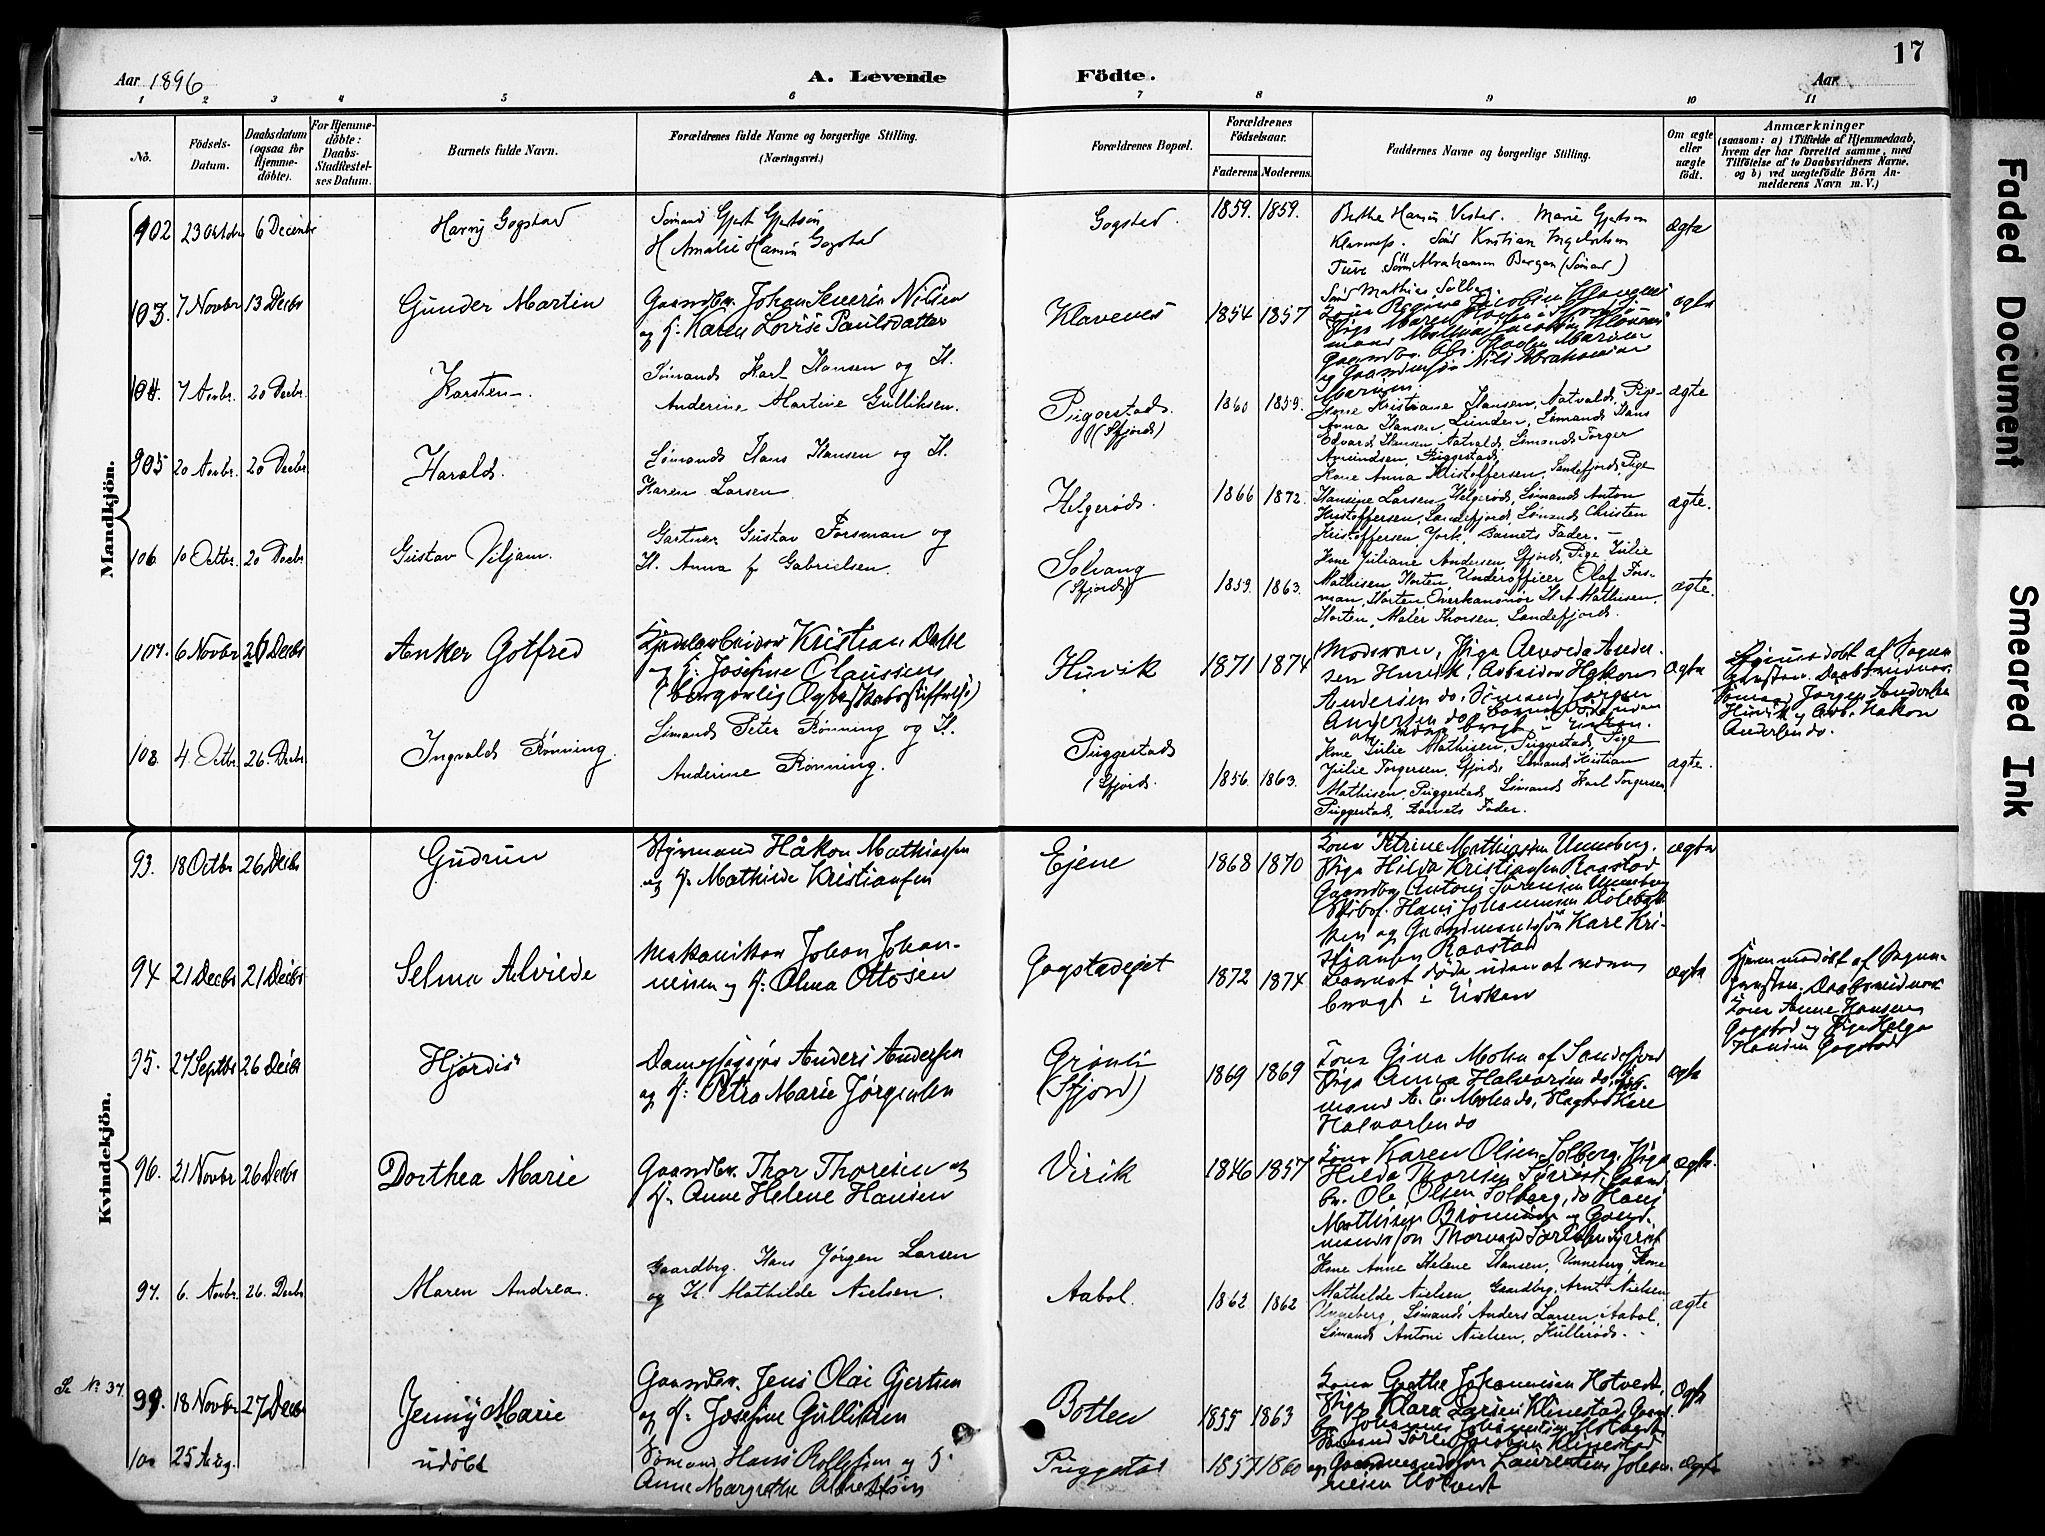 17
Aar 1896
A. Levende Födte.
Aar
1 2 3 4 5 6 7 8 9 10 11
No.
Födsels-Datum.
Daabsdatum (ogsaa for Hjemme-döbte).
For Hjemme-döbte: Daabs-Stadfæstel-ses Datum.
Barnets fulde Navn.
Forældrenes fulde Navne og borgerlige Stilling.
(Næringsvei.)
Forældrenes Bopæl.
Forældrenes Födselsaar.
Faderens Moderens.
Faddernes Navne og borgerlige Stilling.
Om ægte eller uægte födt.
Anmærkninger
(saasom: a) i Tilfælde af Hjemmedaab,
hvem der har forrettet samme, med
Tilföielse af to Daabsvidners Navne.
og b) ved uægtefödte Börn An-
melderens Navn m. V.)
Mandkjön.
102 23 Oktbr 6 Decembr
Harry Gogstad
Sømand Gjert Gjertsen
H Amalie Hansen Gogstad
Gogstad.
1859. 1859.
Berthe Hansen Marie Gjertsen
Kristian
Abrahamsen Bergan (Sømand)
Mathias Solberg
ægte
103. 7 Novbr 13 Decbr
Gunder Martin
Gaardbr. Johan Severin Nilsen
og H: Karen Lovise Paulsdatter
Klavenes
1854 1857
Kone Regine Jacobsen Klavenes
Nils Abrahamsen
ægte
104. 7 Novbr. 20 Decbr.
Karsten
Sømand Karl Hansen og H.
Anderine Martine Gulliksen.
Puggestad.
(Sfjord)
1860 1859.
Kone Kristiane Hansen, Aatvald, Pige
Anna Hansen, Lunden, Sømand Hans
Edvard Hansen, Aatvald, Sømand Torger
Amundsen, Puggestad.
ægte
105 20 Novbr. 20 Decbr
Harald.
Sømand Hans Hansen og H.
Karen Larsen.
Helgerød.
1866 1872.
Kone Anna Kristoffersen, Sandefjord, Pige
Hansine Larsen, Helgerød, Sømand Anton
Kristoffersen, Sandefjord, Sømand Christen
Kristoffersen, York, Barnets Fader.
ægte.
106 10 Octbr. 20 Decbr
Gustav Viljam.
Gartner Gustav Forsman og
H. Anna f Gabrielsen.
Solvang
(Sfjord)
1859. 1863.
Kone Juliane Andersen, Sfjord, Pige Julie
Mathisen, Horten, Underofficer Olaf Fors-
man, Horten, Overkanonér H A Mathisen,
Horten, Maler Thorsen, Sandefjord.
ægte.
107. 6 Novbr 26 Decbr
Anker Gotfred
Kristian Dahl
og H: Josefine Olaussen
(borgerlig Ægteskabsstiftelse)
Huvik
1871 1874
Moderen, Pige Arvida Ander-
sen Huvik, Arbeider Hakon
Andersen do, Sømand Jørgen
Andersen do
ægte
Hjemmedøbt af Sogne-
præsten. Daabsvidner
Sømand Jørgen Andersen
Huvik og Arb. Hakon
Andersen do.
108 4. Octbr. 26 Decbr.
Ingvald Rønning.
Sømand Peter Rønning og H.
Anderine Rønning.
Puggestad
(Sfjord.
1856. 1863.
Kone Julie Mathisen, Puggestad, Pige
Julie Torgersen, Sfjord, Sømand Kristian
Mathisen, Puggestad, Sømand Karl Torgersen
Puggestad, Barnets Fader.
ægte.
Kvindekjön.
93. 18 Octbr 26 Decbr
Gudrun
Styrmand Håkon Mathiassen
og H: Mathilde Kristiansen
Ejene
1868 1870
Kone Petrine Mathiassen Unneberg.
Pige Hilda Kristiansen Raastad
Gaardbr Anton Sørensen Unneberg
Skibsf. Hans Johannesen
og Gaardmandssøn Karl Kri-
stiansen Raastad
ægte
94 21 Decbr 21 Decbr
Selma Alvilde
Mekaniker Johan Johan-
nesen og H: Olma Ottosen
Gogstadejet
1872 1874
Barnet døde uden at være
bragt i Kirken
ægte
Hjemmedøbt af Sogne-
præsten. Daabsvidner
Kone Anne Hansen
Gogstad og Pige Helga
Hansen Gogstad
95. 27 Septbr 26 Decbr
Hjørdis
Anders Andersen
og H: Petra Marie Jørgensen
Grønli
(Sfjord)
1869 1869
Kone Gina Mohn af Sandefjord
Pige Anna Halvorsen do, Sø-
mand A. C. Mohn do, Kare
Halvorsen do
ægte
96. 21 Novbr 26 Decbr
Dorthea Marie
Gaardbr. Thor Thoresen og
H: Anne Helene Hansen
Virik
1846 1857
Kone Karen Olsen Solberg, Pige
Hilda Thoresen Sørrist, Gaard
br. Ole Olsen Solberg, do Hans
Mathisen og Gaard-
mandssøn Thorvald Sørensen Sørrist
ægte.
97. 6. Novbr. 26. Decbr
Maren Andrea.
Gaardbrg. Hans Jørgen Larsen
og H. Mathilde Nielsen.
Aabol.
1862 1862
Kone Anne Helene Hansen, Unneberg, Kone
Mathilde Nielsen, Gaardbrg. Arnt Nielsen
Unneberg, Sømand Anders Larsen, Aabol,
Sømand Antoni Nielsen, Kullerød.
ægte
Se No 37.
99. 18 Novbr 27 Decbr
Jenny Marie
Gaardbr. Jens Olai Gjertsen
og H: Josefine Gulliksen
Botten
1855 1863
Kone Grethe Johannesen Hotvedt,
Pige Klara Larsen Klinestad, Gaard
br. Johannes Johannesen Hotvedt
Sømand Søren Jacobsen Klinestad
og Gaardmandssøn Laurentius Johan-
nesen Hotvedt
ægte
100 25 Aug.
udøbt
Sømand Hans Rolfsen og H.
Anne Margrethe Albertsen
Puggestad
1857 1860
ægte
Faded Document
Smeared Ink